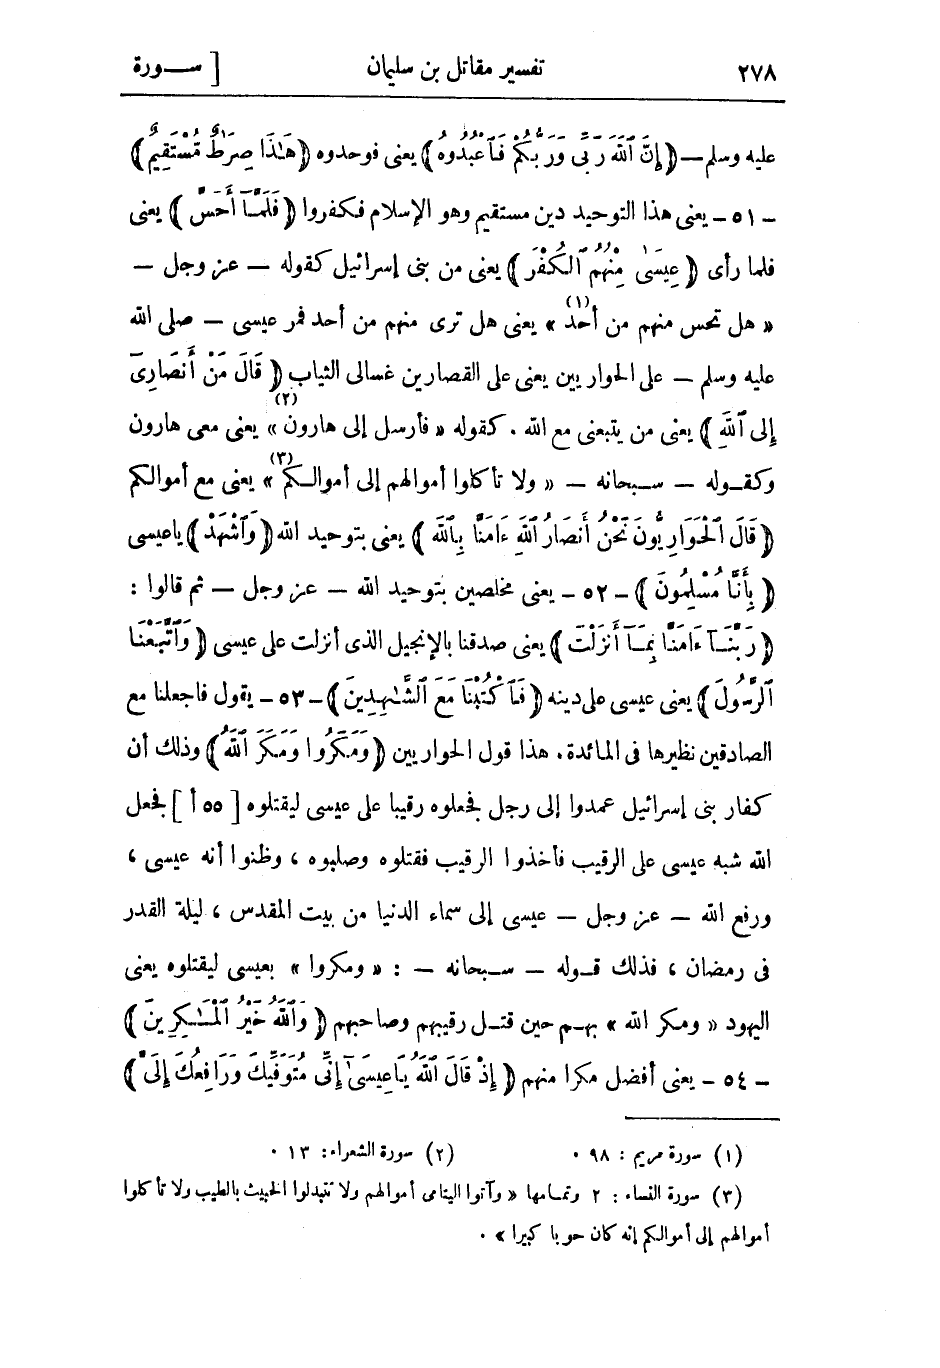 ٢٧٨ تفسير مقاتل بن سليمان [ ســورة
عليه وسلم — ﴿ إِنَّ ٱللَّهَ رَبِّى وَرَبُّكُمْ فَٱعْبُدُوهُ ﴾ يعنى فوحدوه ﴿ هَـٰذَا صِرَٰطٌ مُّسْتَقِيمٌ ﴾
- ٥١ - يعنى هذا التوحيد دين مستقيم وهو الإسلام فكفروا ﴿ فَلَمَّآ أَحَسَّ ﴾ يعنى
فلما رأى ﴿ عِيسَىٰ مِنْهُمُ ٱلْكُفْرَ ﴾ يعنى من بنى إسرائيل كقوله — عز وجل —
« هل تحس منهم من أحد (١) » يعنى هل ترى منهم من أحد فمر عيسى — صلى الله
عليه وسلم — على الحواريين يعنى على القصارين غسالى الثياب ﴿ قَالَ مَنْ أَنصَارِىٓ
إِلَى ٱللَّهِ ﴾ يعنى من يتبعنى مع الله . كقوله « فأرسل إلى هارون (٢) » يعنى معى هارون
وكقـوله — سـبحانه — « ولا تأكلوا أموالهم إلى أموالـكم (٣) » يعنى مع أموالكم
﴿ قَالَ ٱلْحَوَارِيُّونَ نَحْنُ أَنصَارُ ٱللَّهِ ءَامَنَّا بِٱللَّهِ ﴾ يعنى بتوحيد الله ﴿ وَٱشْهَدْ ﴾ ياعيسى
﴿ بِأَنَّا مُسْلِمُونَ ﴾ - ٥٢ - يعنى مخلصين بتوحيد الله — عز وجل — ثم قالوا :
﴿ رَبَّنَـآ ءَامَنَّا بِمَـآ أَنزَلْتَ ﴾ يعنى صدقنا بالإنجيل الذى أنزلت على عيسى ﴿ وَٱتَّبَعْنَا
ٱلرَّسُولَ ﴾ يعنى عيسى على دينه ﴿ فَٱكْتُبْنَا مَعَ ٱلشَّـٰهِدِينَ ﴾ - ٥٣ - يقول فاجعلنا مع
الصادقين نظيرها فى المائدة. هذا قول الحواريين ﴿ وَمَكَرُوا وَمَكَرَ ٱللَّهُ ﴾ وذلك أن
كفار بنى إسرائيل عمدوا إلى رجل فجعلوه رقيبا على عيسى ليقتلوه [ ٥٥ أ ] فجعل
الله شبه عيسى على الرقيب فأخذوا الرقيب فقتلوه وصلبوه ، وظنوا أنه عيسى ،
ورفع الله — عز وجل — عيسى إلى سماء الدنيا من بيت المقدس ، ليلة القدر
فى رمضان ، فذلك قـوله — سـبحانه — : « ومكروا » بعيسى ليقتلوه يعنى
اليهود « ومكر الله » بهـم حين قتـل رقيبهم وصاحبهم ﴿ وَٱللَّهُ خَيْرُ ٱلْمَـٰكِرِينَ ﴾
- ٥٤ - يعنى أفضل مكرا منهم ﴿ إِذْ قَالَ ٱللَّهُ يَـٰعِيسَىٰٓ إِنِّى مُتَوَفِّيكَ وَرَافِعُكَ إِلَىَّ ﴾
(١) سورة مريم : ٩٨ . (٢) سورة الشعراء: ١٣ .
(٣) سورة النساء : ٢ وتمـامها « وآتوا اليتامى أموالهم ولا تتبدلوا الخبيث بالطيب ولا تأكلوا
أموالهم إلى أموالكم إنه كان حوبا كبيرا » .